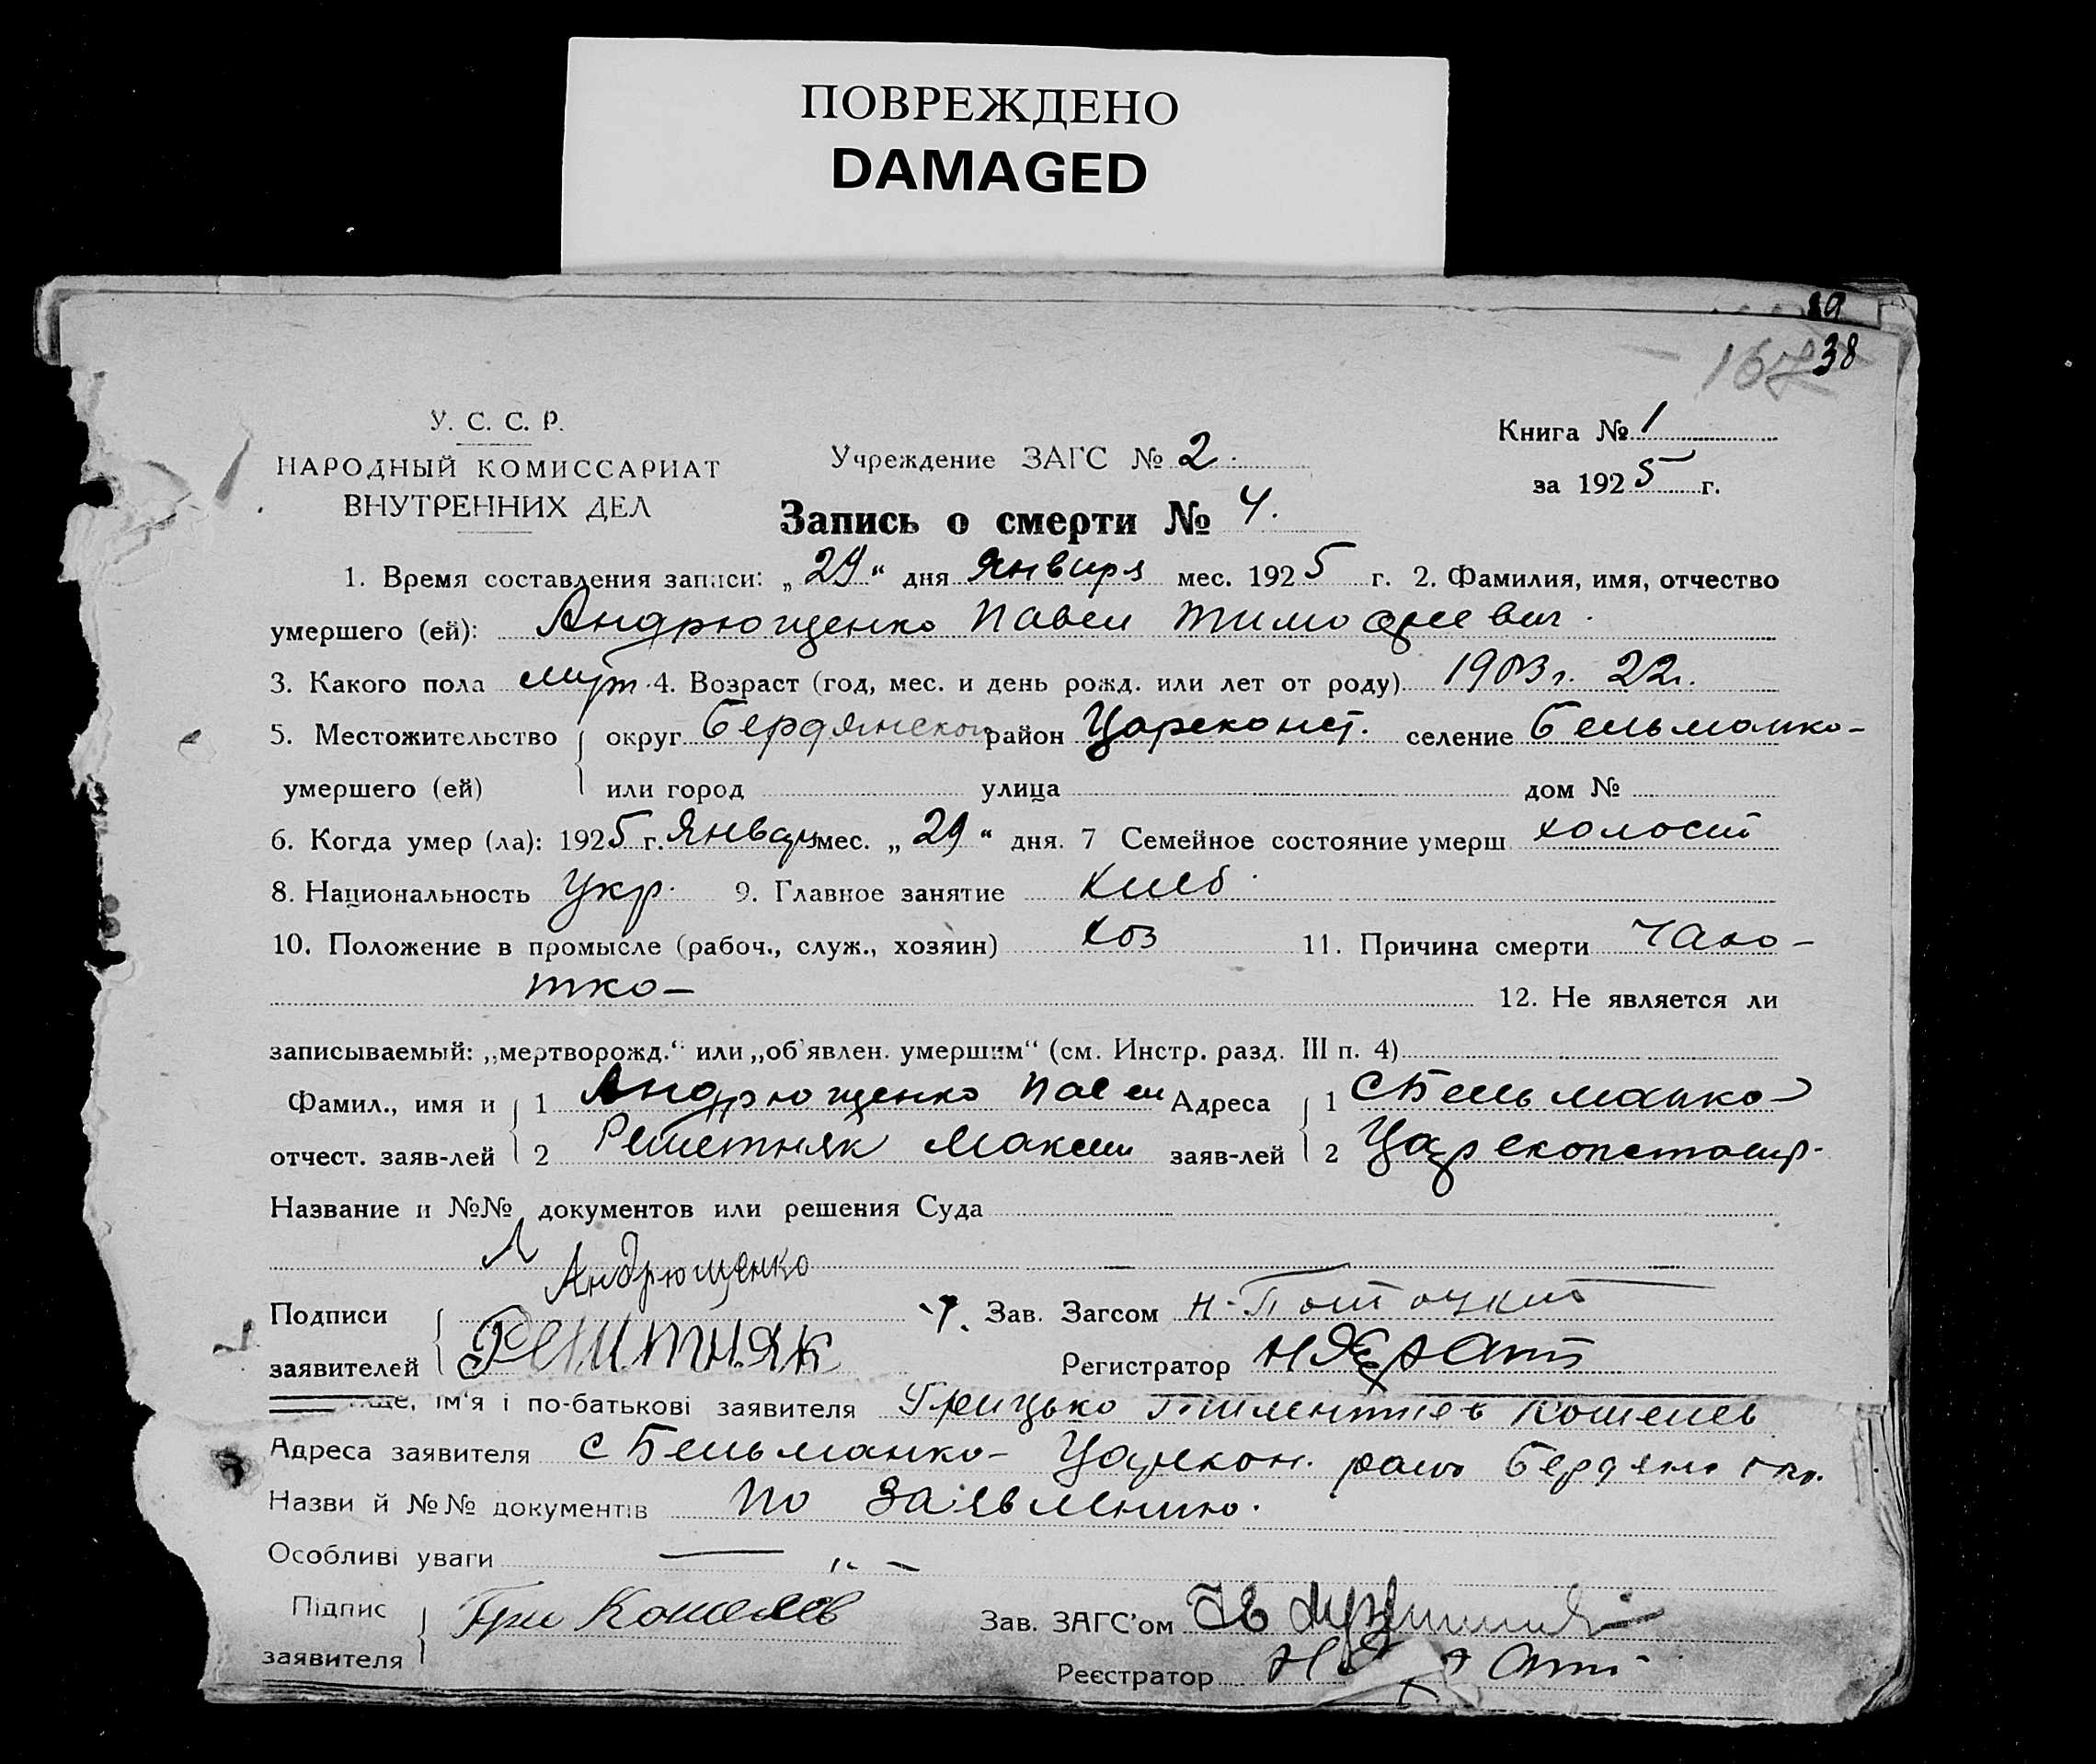 ПОВРЕЖДЕНО
DAMAGED
39
38
У. С. С. Р.
НАРОДНЫЙ КОМИССАРИАТ
ВНУТРЕННИХ ДЕЛ
Учреждение ЗАГС № 2.
Книга № 1
за 1925 г.
Запись о смерти № 4.
1. Время составления записи: „29“ дня Января мес. 1925 г. 2. Фамилия, имя, отчество
умершего (ей): Андрющенко Павел Тимофеевич.
3. Какого пола муж 4. Возраст (год, мес. и день рожд. или лет от роду) 1903 г. 22 г.
5. Местожительство округ Бердянской район Цареконст. селение Бельманко-
умершего (ей) или город улица дом №
6. Когда умер (ла): 1925 г. Января мес. „29“ дня. 7 Семейное состояние умерш. холост
8. Национальность Укр. 9. Главное занятие Хлеб.
10. Положение в промысле (рабоч., служ., хозяин) Хоз 11. Причина смерти чахо-
тко- 12. Не является ли
записываемый: „мертворожд.“ или „об'явлен. умершим“ (см. Инстр. разд. III п. 4)
Фамил., имя и 1 Андрющенко Павел Адреса 1 С Бельманко-
отчест. заяв-лей 2 Решетняк Максим заяв-лей 2 Цареконстант.
Название и №№ документов или решения Суда
Андрющенко
Подписи Зав. Загсом Н. Потоцкий
заявителей Решитняк Регистратор
ім'я і по-батькові заявителя Грицько Кошелев
Адреса заявителя с Бельманко- Царекон. район Бердянс окр.
Назви й №№ документів По заявлению.
Особливі уваги
Підпис Гри Кошелев Зав. ЗАГС'ом
заявителя Реєстратор